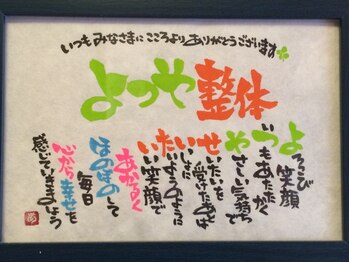 いつもみなさまに こころより ありがとうございます
よつや整体
よろこび笑顔
いつもあたたかく
やさしい気持ちで
せいたいを
受けたあとは
いっしょに
たいようのように
いい笑顔で
あかるく
ほのぼのして
毎日
心から幸せを
感じていきましょう